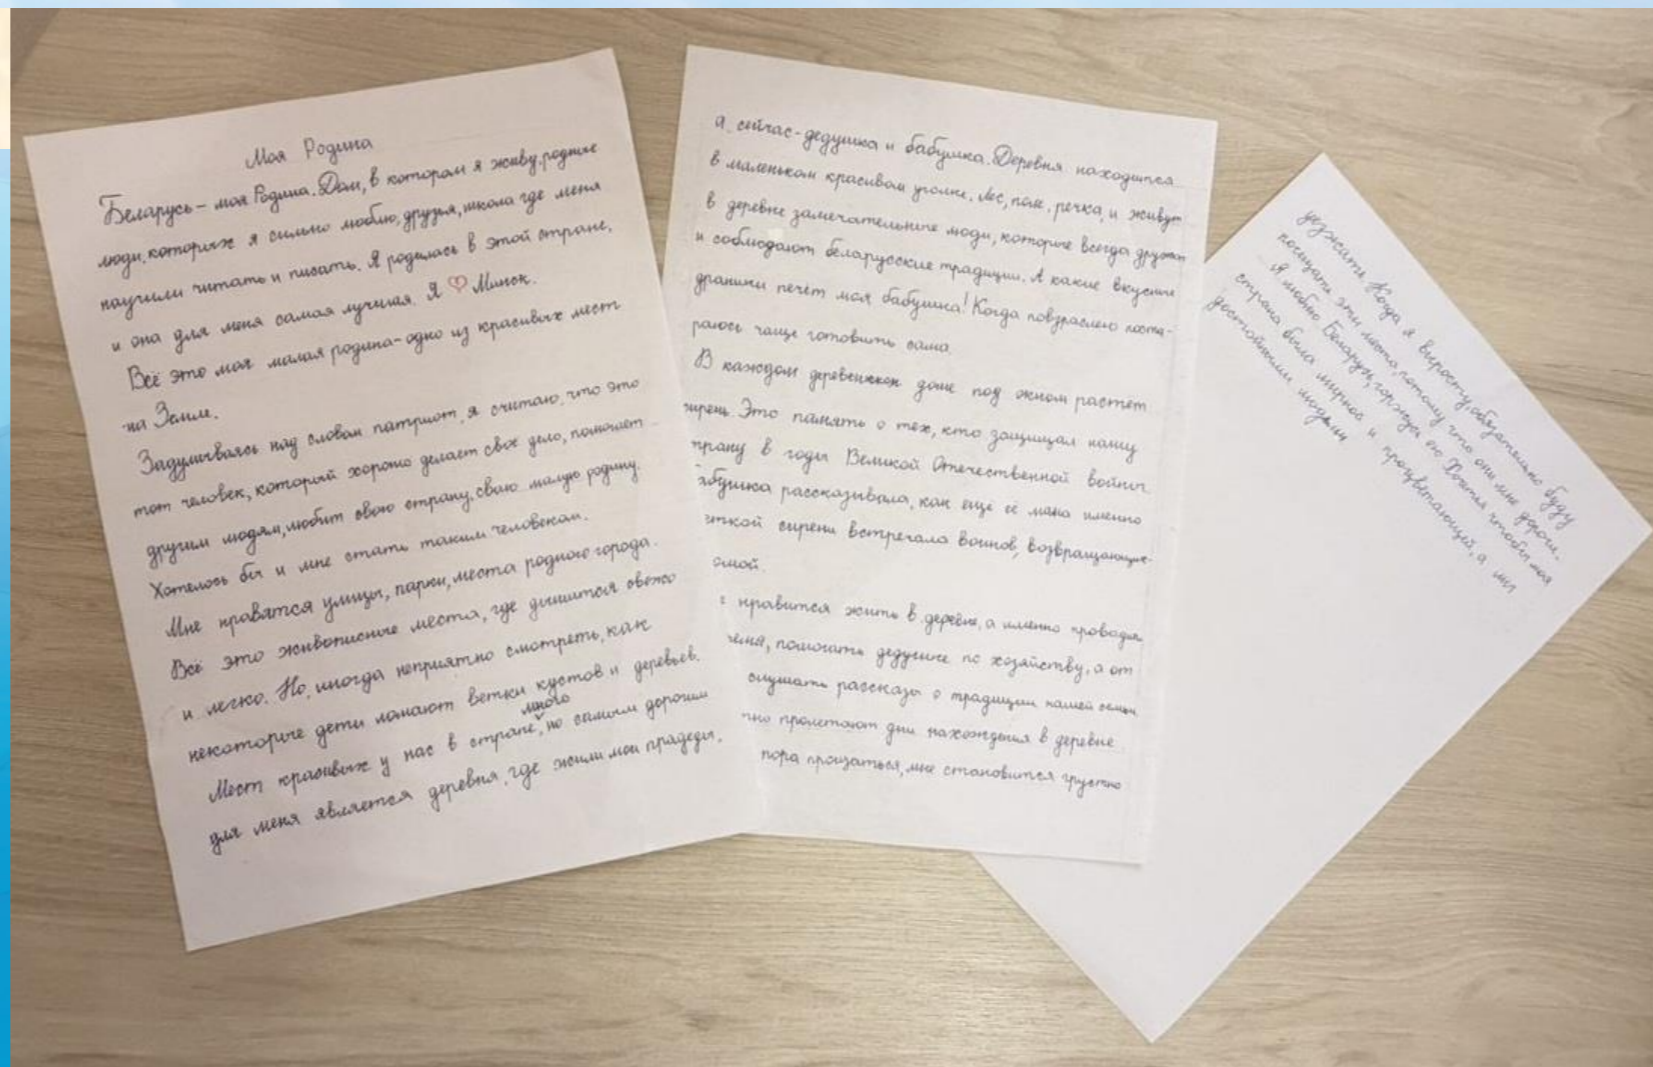 Моя Родина
Беларусь – моя Родина. Дом, в котором я живу, родные
люди, которых я сильно люблю, друзья, школа где меня
научили читать и писать. Я родилась в этой стране,
и она для меня самая лучшая. Я ♡ Минск.
Всё это моя малая родина - одно из красивых мест
на Земле.
Задумываясь над словом патриот, я считаю, что это
тот человек, который хорошо делает своё дело, помогает
другим людям, любит свою страну, свою малую родину.
Хотелось бы и мне стать таким человеком.
Мне нравятся улицы, парки, места родного города.
Всё это живописные места, где дышится свежо
и легко. Но, иногда неприятно смотреть, как
некоторые дети ломают ветки кустов и деревьев.
Мест красивых у нас в стране много, но самым дорогим
для меня является деревня, где жили мои прадеды,
а сейчас - дедушка и бабушка. Деревня находится
в маленьком красивом уголке. Лес, поле, речка, и живут
в деревне замечательные люди, которые всегда дружат
и соблюдают беларусские традиции. А какие вкусные
драники печёт моя бабушка! Когда повзрослею поста-
раюсь чаще готовить сама.
В каждом деревенском доме под окном растёт
сирень. Это память о тех, кто защищал нашу
трану в годы Великой Отечественной войны.
абушка рассказывала, как ещё её мама именно
еткой сирени встречала воинов, возвращающих-
омой.
нравится жить в деревне, а именно проводя
емя, помогать дедушке по хозяйству, а от
слушать рассказы о традиции нашей семьи
но пролетают дни нахождения в деревне
пора прощаться, мне становится грустно
уезжать. Когда я вырасту, обязательно буду
посещать эти места, потому что они мне дороги.
Я люблю Беларусь, горжусь ею. Хочется чтобы моя
страна была мирной и процветающей, а мы
достойными людьми